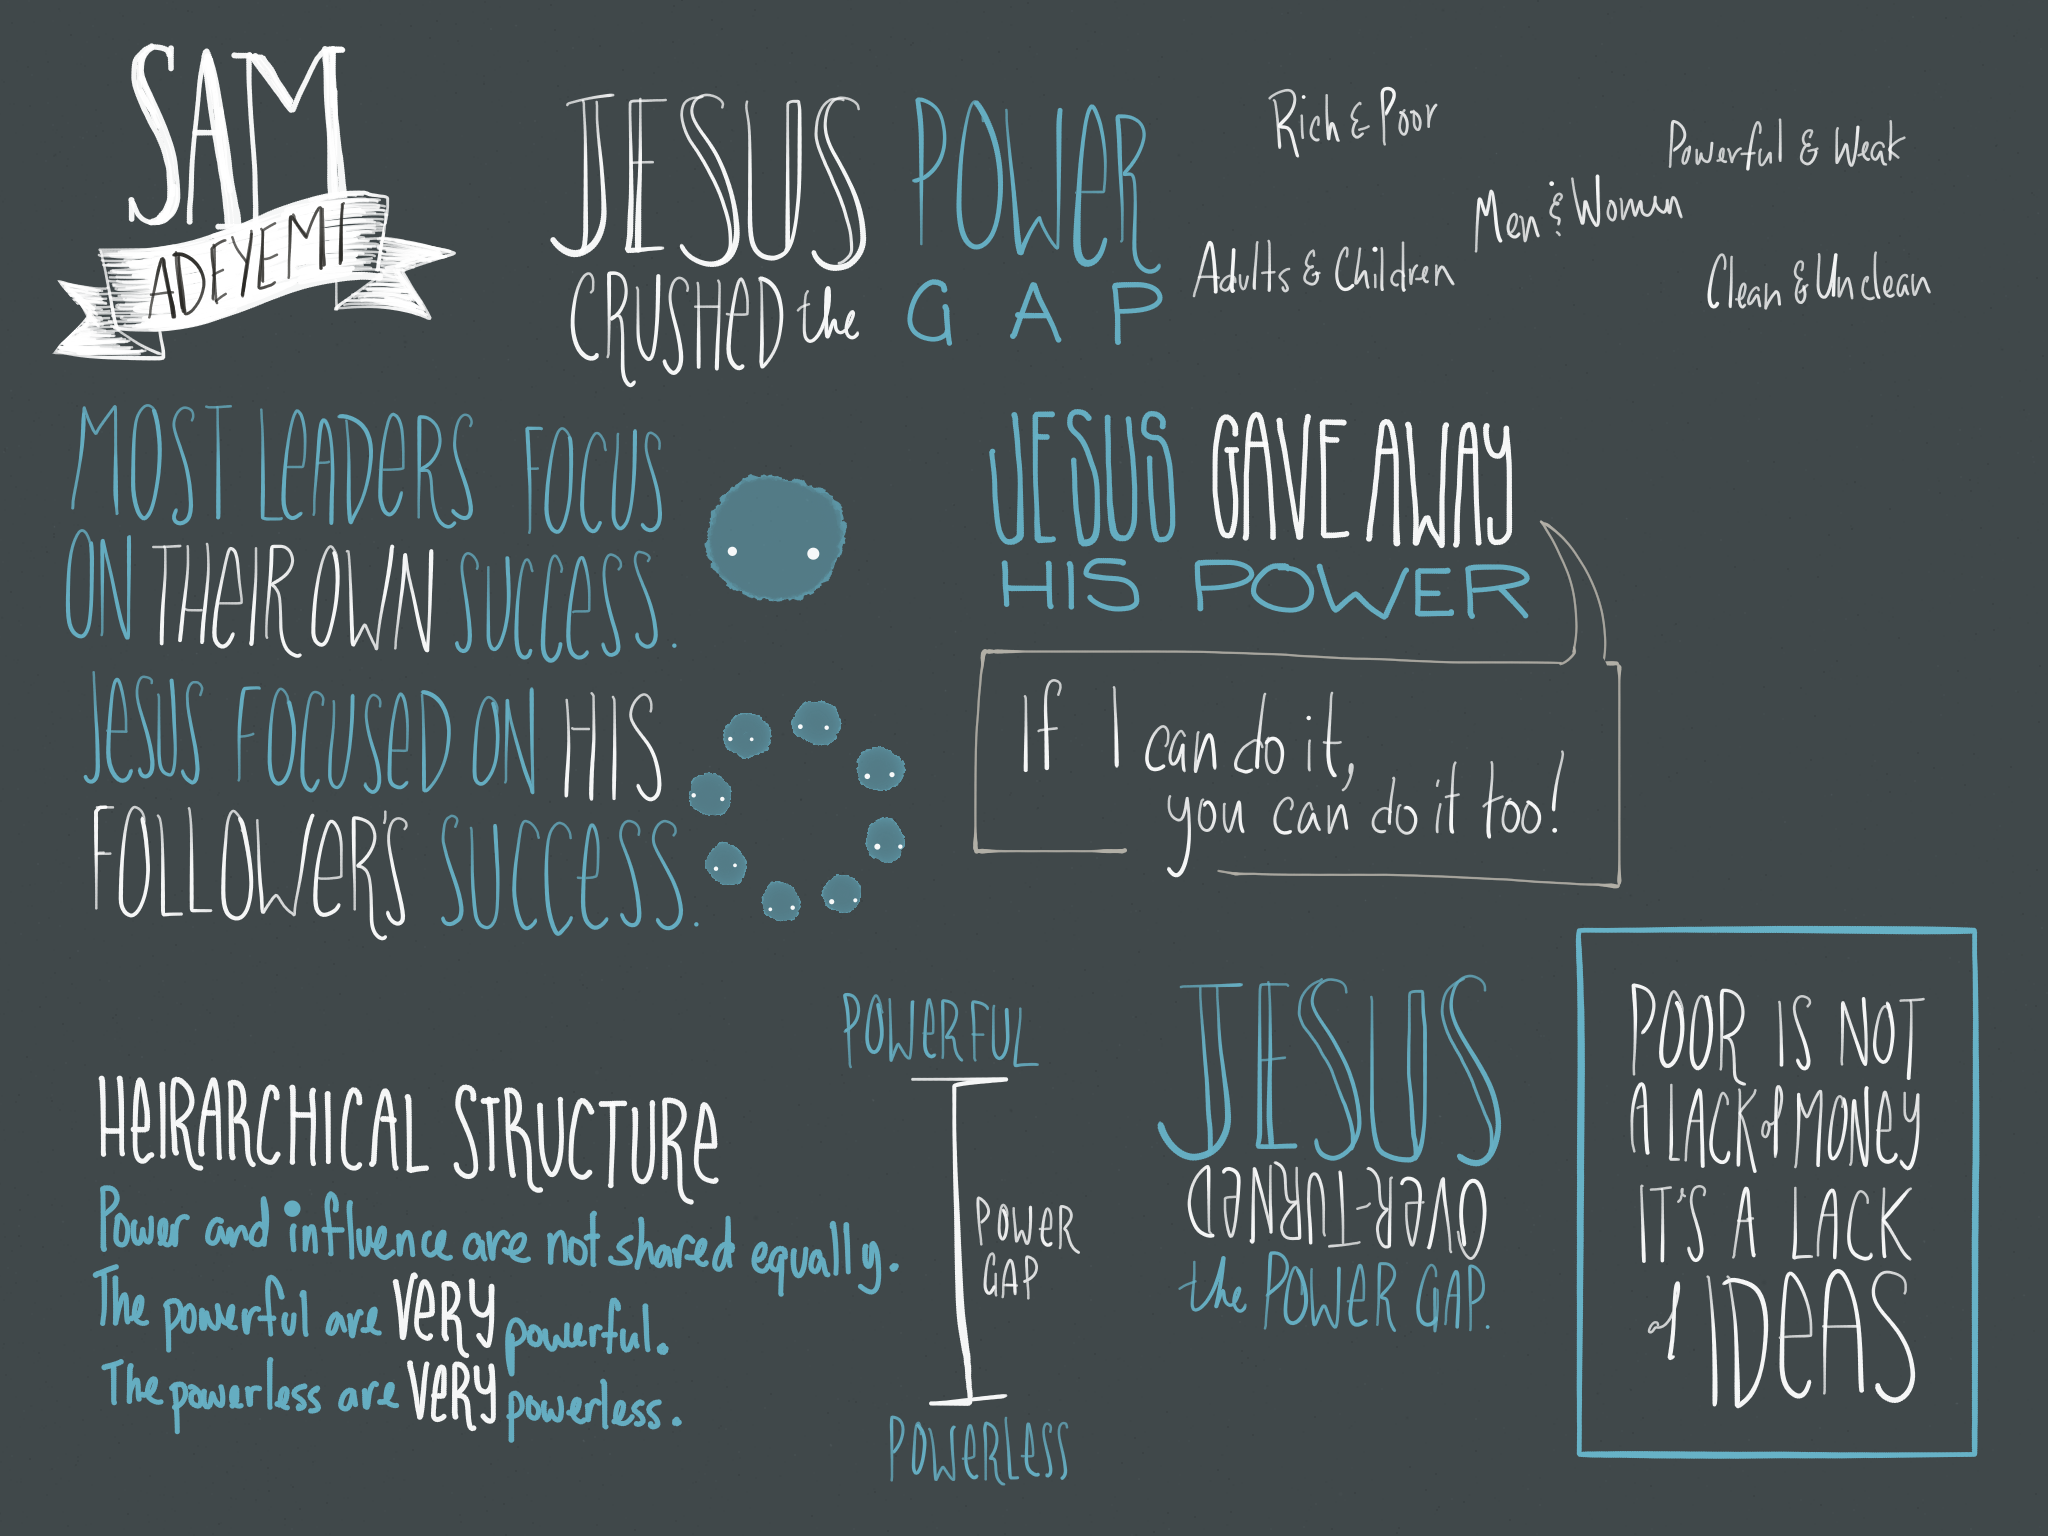 SAM
ADEYEMI
JESUS POWER
CRUSHED the GAP
Rich & Poor
Powerful & Weak
Men & Women
Adults & Children
Clean & Unclean
MOST LEADERS FOCUS
ON THEIR OWN SUCCESS.
JESUS FOCUSED ON HIS
FOLLOWER'S SUCCESS.
JESUS GAVE AWAY
HIS POWER
If I can do it,
you can do it too!
HEIRARCHICAL STRUCTURE
Power and influence are not shared equally.
The powerful are VERY powerful.
The powerless are VERY powerless.
POWERFUL
POWER
GAP
POWERLESS
JESUS
OVER-TURNED
the POWER GAP.
POOR IS NOT
A LACK of MONEY
IT'S A LACK
of IDEAS